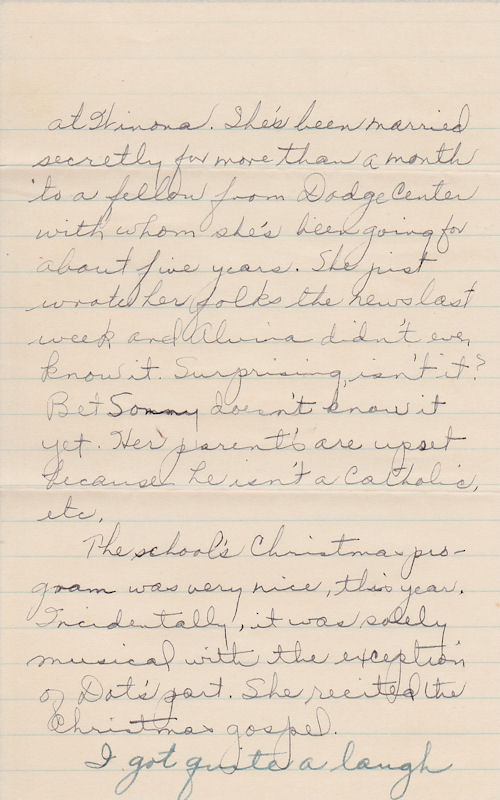 at Winona. She's been married
secretly for more than a month
to a fellow from Dodge Center
with whom she's been going for
about five years. She just
wrote her folks the news last
week and Alvina didn't even
know it. Surprising, isn't it?
Bet Sonny doesn't know it
yet. Her parent's are upset
because he isn't a Catholic,
etc.
The school's Christmas pro-
gram was very nice, this year.
Incidentally, it was solely
musical with the exception
of Dot's part. She recited the
Christmas gospel.
I got quite a laugh